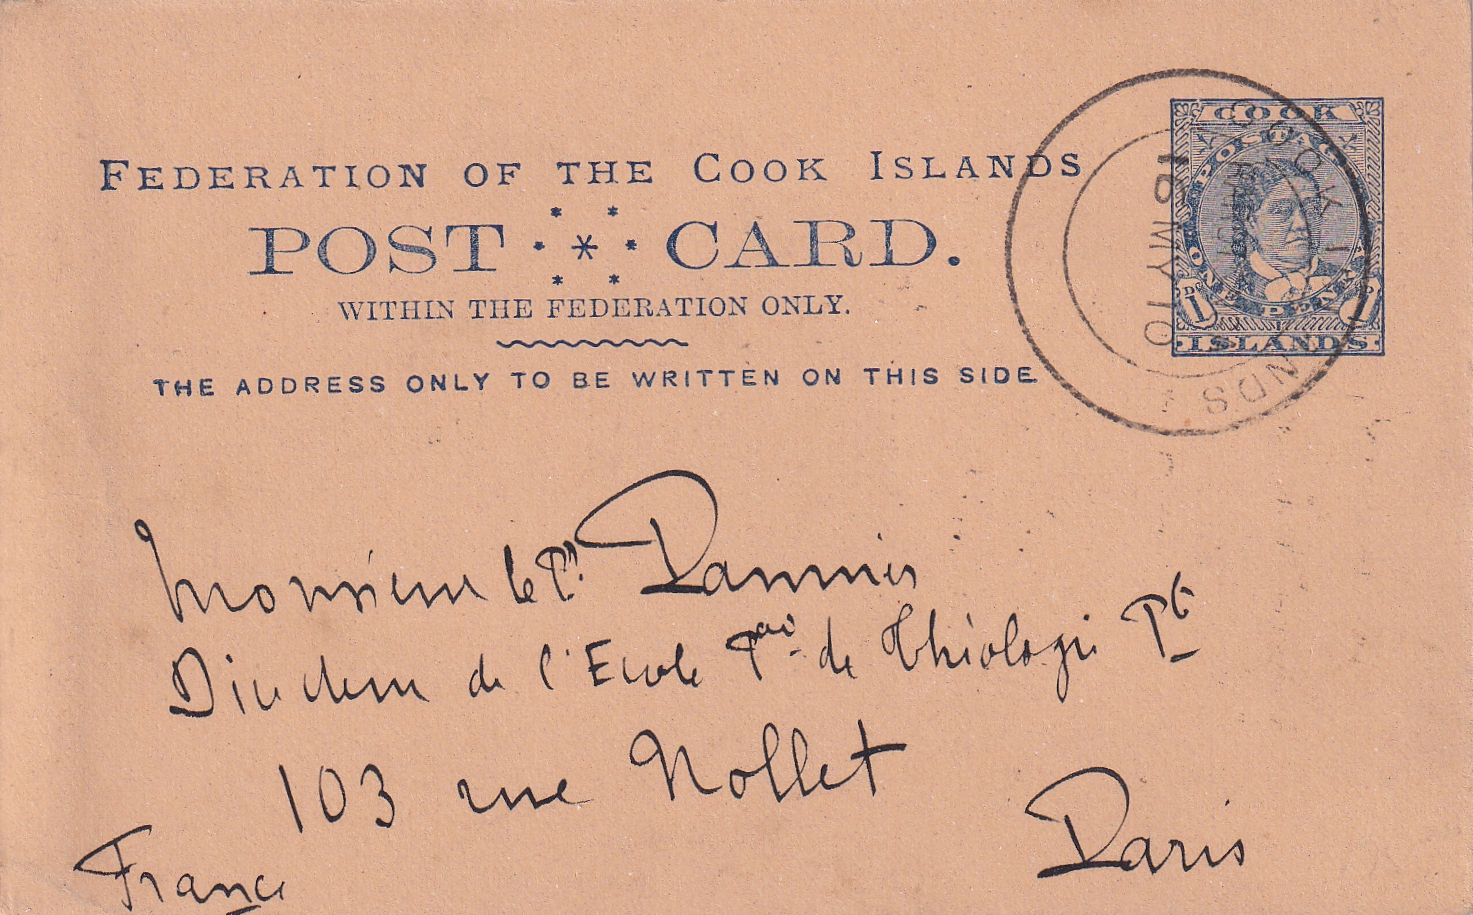 FEDERATION OF THE COOK ISLANDS
POST CARD.
WITHIN THE FEDERATION ONLY.
THE ADDRESS ONLY TO BE WRITTEN ON THIS SIDE
COOK
POSTAGE
ONE PENNY
1D
1D
ISLANDS
COOK ISLANDS
18 MY 10
Monsieur le Pr.
Directeur de l'Ecole de Théologie Pte
103 rue Nollet
Paris
France